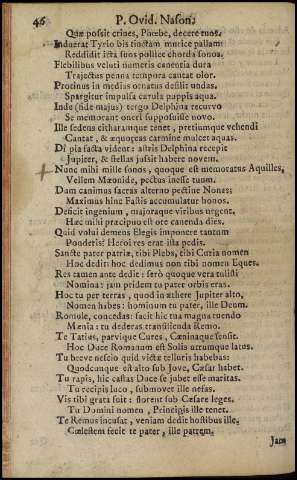 46 P. Ovid. Nason.
Quæ possit crines, Phœbe, decere tuos.
Induerat Tyrio bis tinctam murice pallam:
Reddidit icta suos pollice chorda sonos.
Flebilibus veluti numeris canentia dura
Trajectus penna tempora cantat olor.
Protinus in medias ornatus desilit undas.
Spargitur impulsa cærula puppis aqua.
Inde (fide majus) tergo Delphina recurvo
Se memorant oneri supposuisse novo.
Ille sedens citharamque tenet, pretiumque vehendi
Cantat, & æquoreas carmine mulcet aquas.
Di pia facta vident: astris Delphina recepit
Jupiter, & stellas jussit habere novem.
Nunc mihi mille sonos, quoque est memoratus Aquilles,
Vellem Mæonide, pectus inesse tuum.
Dum canimus sacras alterno pectine Nonas;
Maximus hinc Fastis accumulatur honos.
Deficit ingenium, majoraque viribus urgent.
Hæc mihi præcipuo est ore canenda dies.
Quid volui demens Elegis imponere tantum
Ponderis? Heroi res erat ista pedis.
Sancte pater patriæ, tibi Plebs, tibi Curia nomen
Hoc dedit: hoc dedimus tibi nomen Eques.
Res tamen ante dedit: serò quoque vera tulisti
Nomina: jam pridem tu pater orbis eras.
Hoc tu per terras, quod in æthere Jupiter alto,
Nomen habes: hominum tu pater, ille Deum.
Romule, concedas: facit hic tua magna tuendo
Mænia: tu dederas transilienda Remo.
Te Tatius, parvique Cures, Cæninaque sensit.
Hoc Duce Romanum est Solis utrumque latus.
Tu breve nescio quid victæ telluris habebas:
Quodcunque est alto sub Jove, Cæsar habet.
Tu rapis, hic castas Duce se jubet esse maritas.
Tu recipis luco, submovet ille nefas.
Vis tibi grata fuit: florent sub Cæsare leges.
Tu Domini nomen, Principis ille tenet.
Te Remus incusat, veniam dedit hostibus ille.
Cœlestem fecit te pater, ille patrem.
Jam